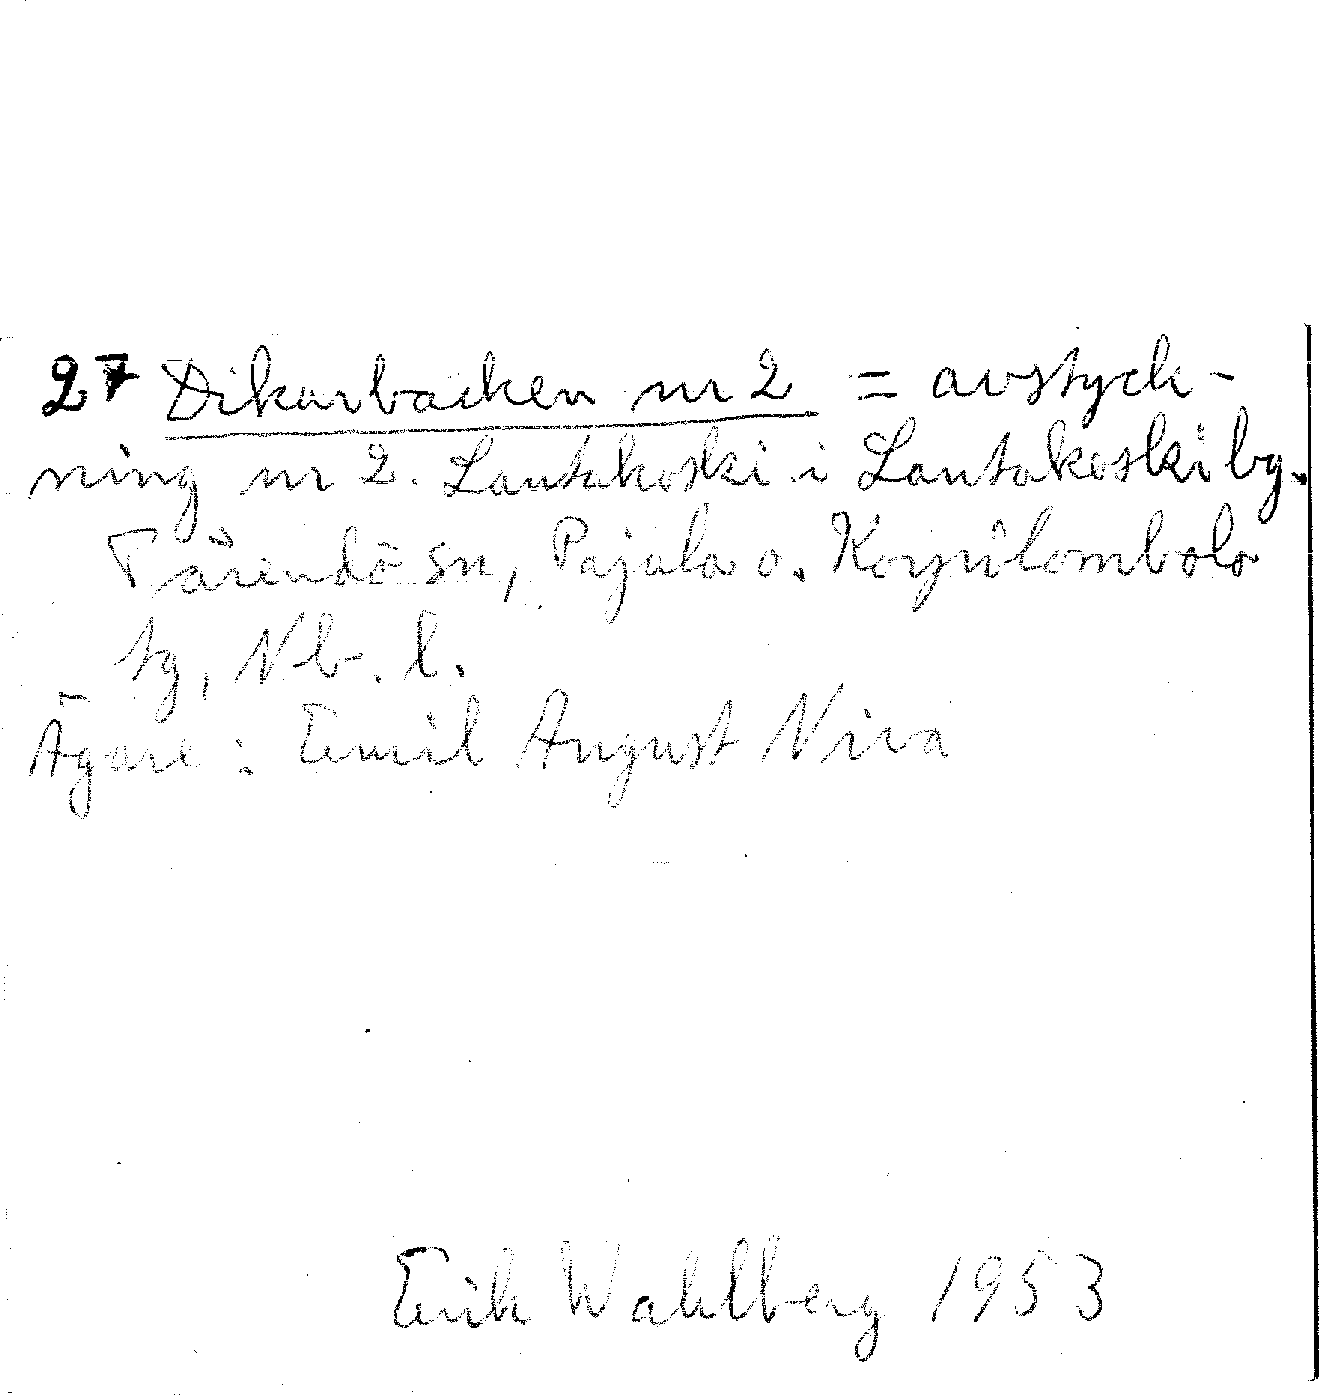 27 Dikarbacken nr 2 = avstyck-
ning nr 2. Lautakoski i Lautakoski by.
Tärendö sn, Pajala o. Korpilombolo
tg, Nb. l.
Ägare: Emil August Niva
Erik Wahlberg 1953